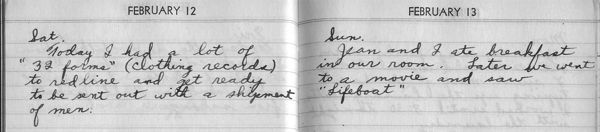 FEBRUARY 12
Sat.
Today I had a lot of
"32 forms" (clothing records)
to redline and get ready
to be sent out with a shipment
of men.
FEBRUARY 13
Sun.
Jean and I ate breakfast
in our room. Later we went
to a movie and saw
"Lifeboat"